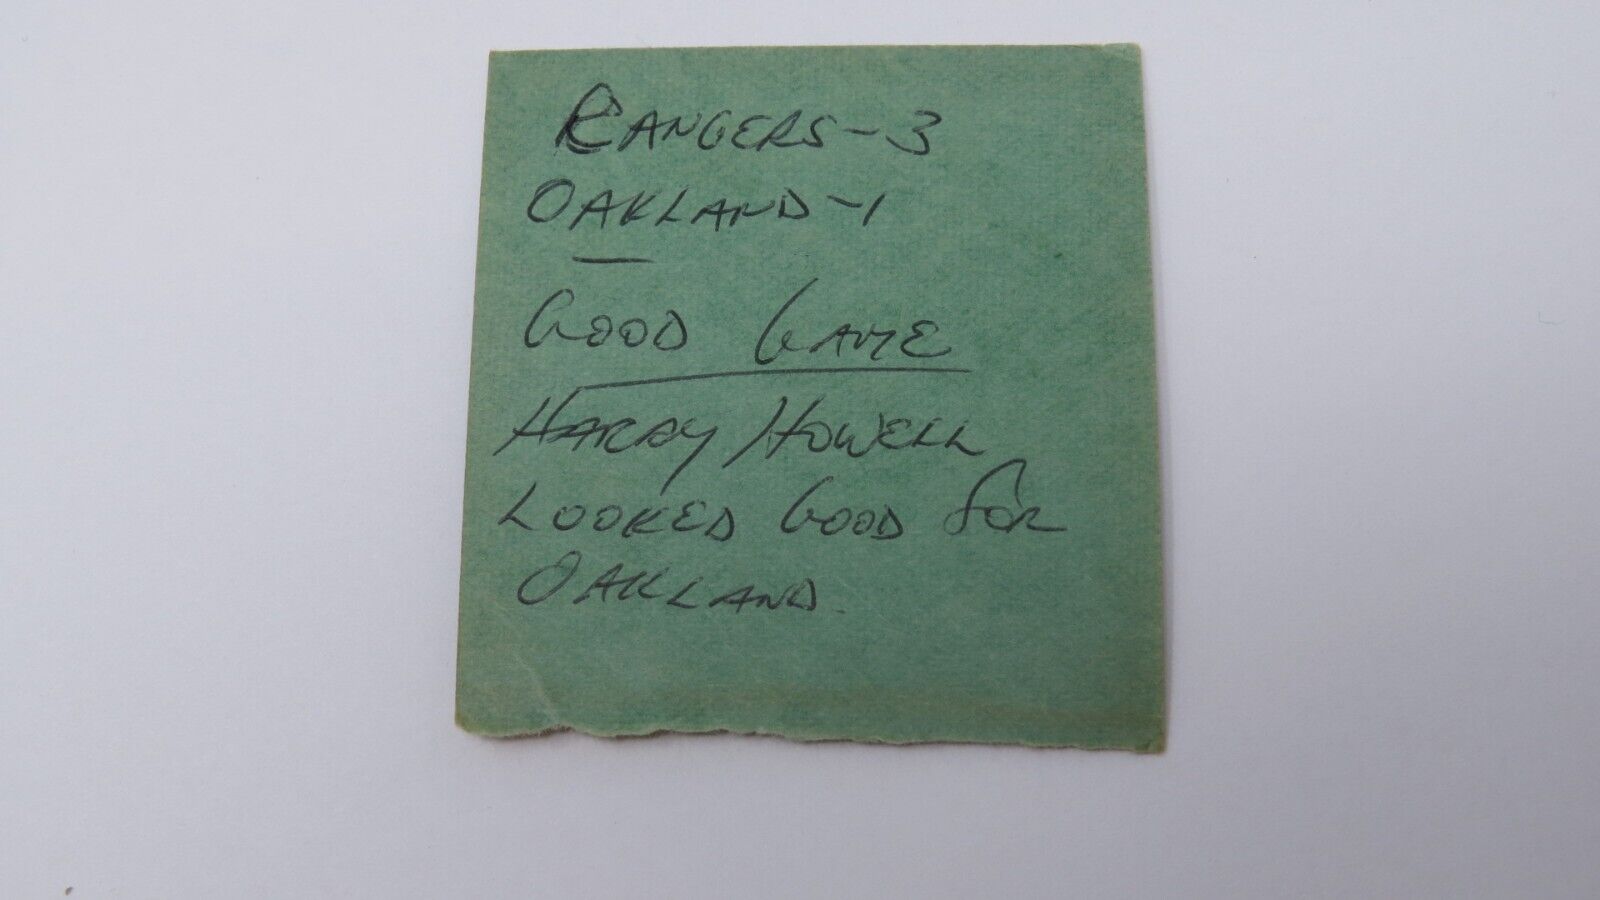 RANGERS-3
OAKLAND-1
GOOD GAME
HARRY HOWELL
LOOKED GOOD FOR
OAKLAND.